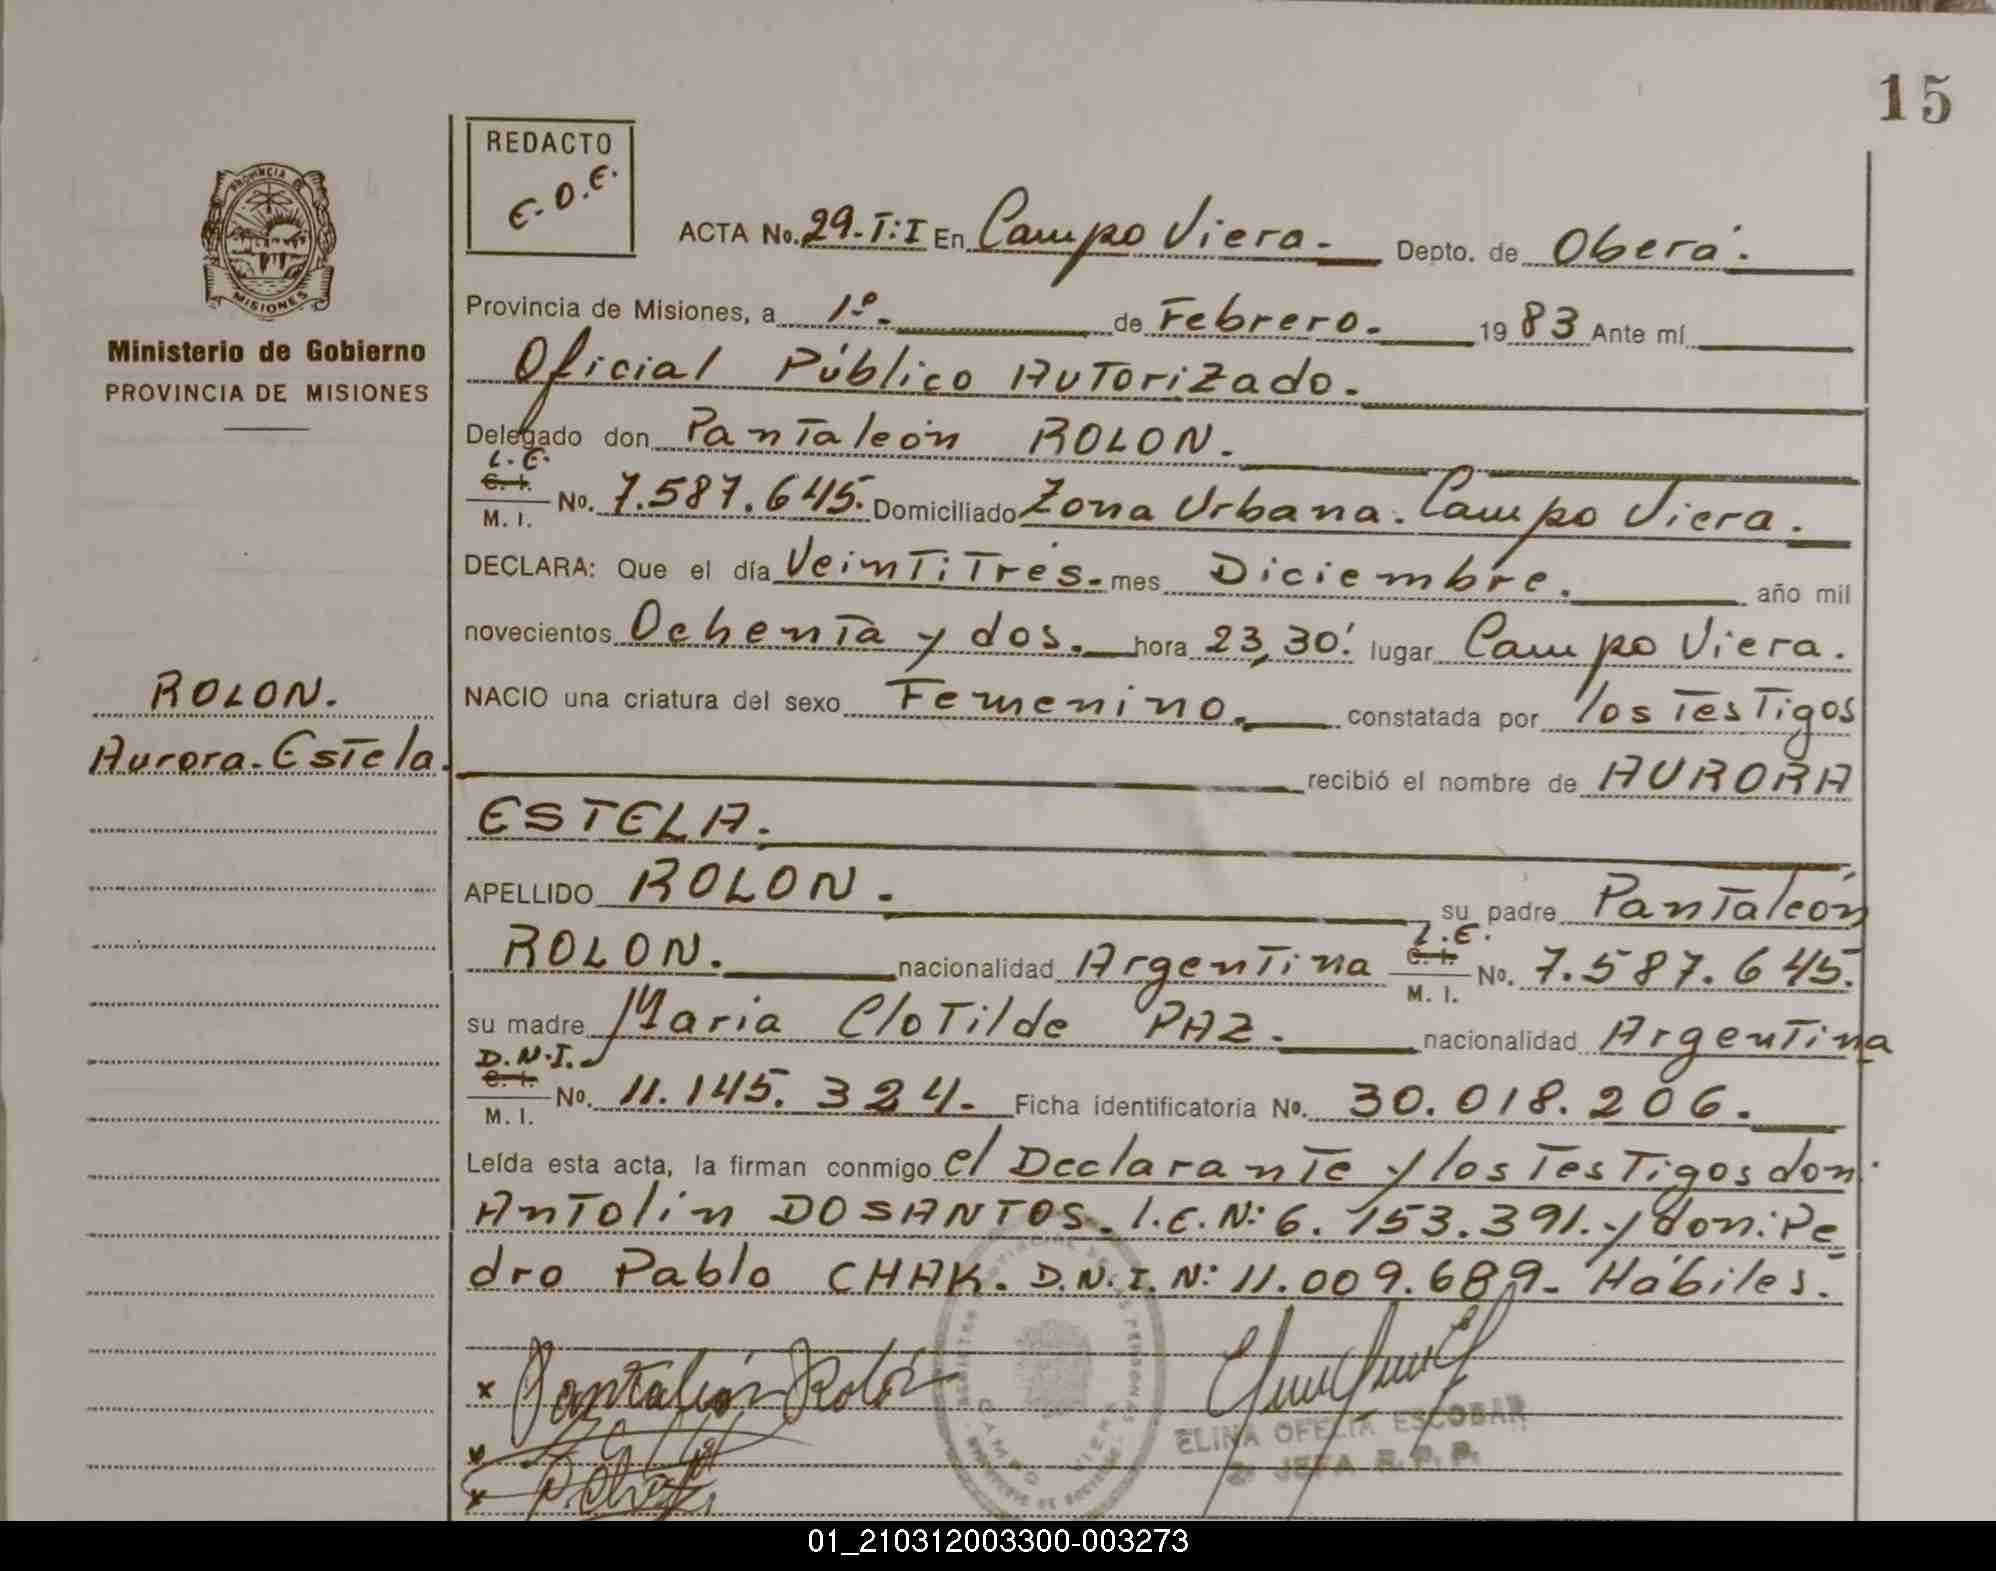 15
REDACTO
E.O.E.
PROVINCIA DE
MISIONES
Ministerio de Gobierno
PROVINCIA DE MISIONES
ACTA No. 29-T:I En Campo Viera.- Depto. de Oberá.
Provincia de Misiones, a 1º- de Febrero.- 1983 Ante mí
Oficial Público AUTorizado.
Delegado don Pantaleón ROLON.
L.E.
C. I.
M. I. No. 7.587.645. Domiciliado Zona Urbana. Campo Viera.
DECLARA: Que el día VeinTiTrés.- mes Diciembre. año mil
novecientos Ochenta y dos. hora 23,30' lugar Campo Viera.
NACIO una criatura del sexo Femenino. constatada por los TesTigos
recibió el nombre de AURORA
ESTELA.
ROLON.
Aurora-Estela.
APELLIDO ROLON. su padre Pantaleón
ROLON. nacionalidad Argentina
L.E.
C. I.
M. I. No. 7.587.645.
su madre Maria Clotilde PAZ. nacionalidad Argentina
D.N.I.
C. I.
M. I. No. 11.145.324.- Ficha identificatoria No. 30.018.206.
Leída esta acta, la firman conmigo el Declarante y los TesTigos don:
Antolín DOSANTOS. L.E.N: 6.153.391. y don: Pe
dro Pablo CHAK. D.N.I. N: 11.009.689- Hábiles.
x Pantaleón Rolón
x
x
CAMPO VIERA
ELINA OFELIA ESCOBAR
JEFA R.P.P.
01_210312003300-003273